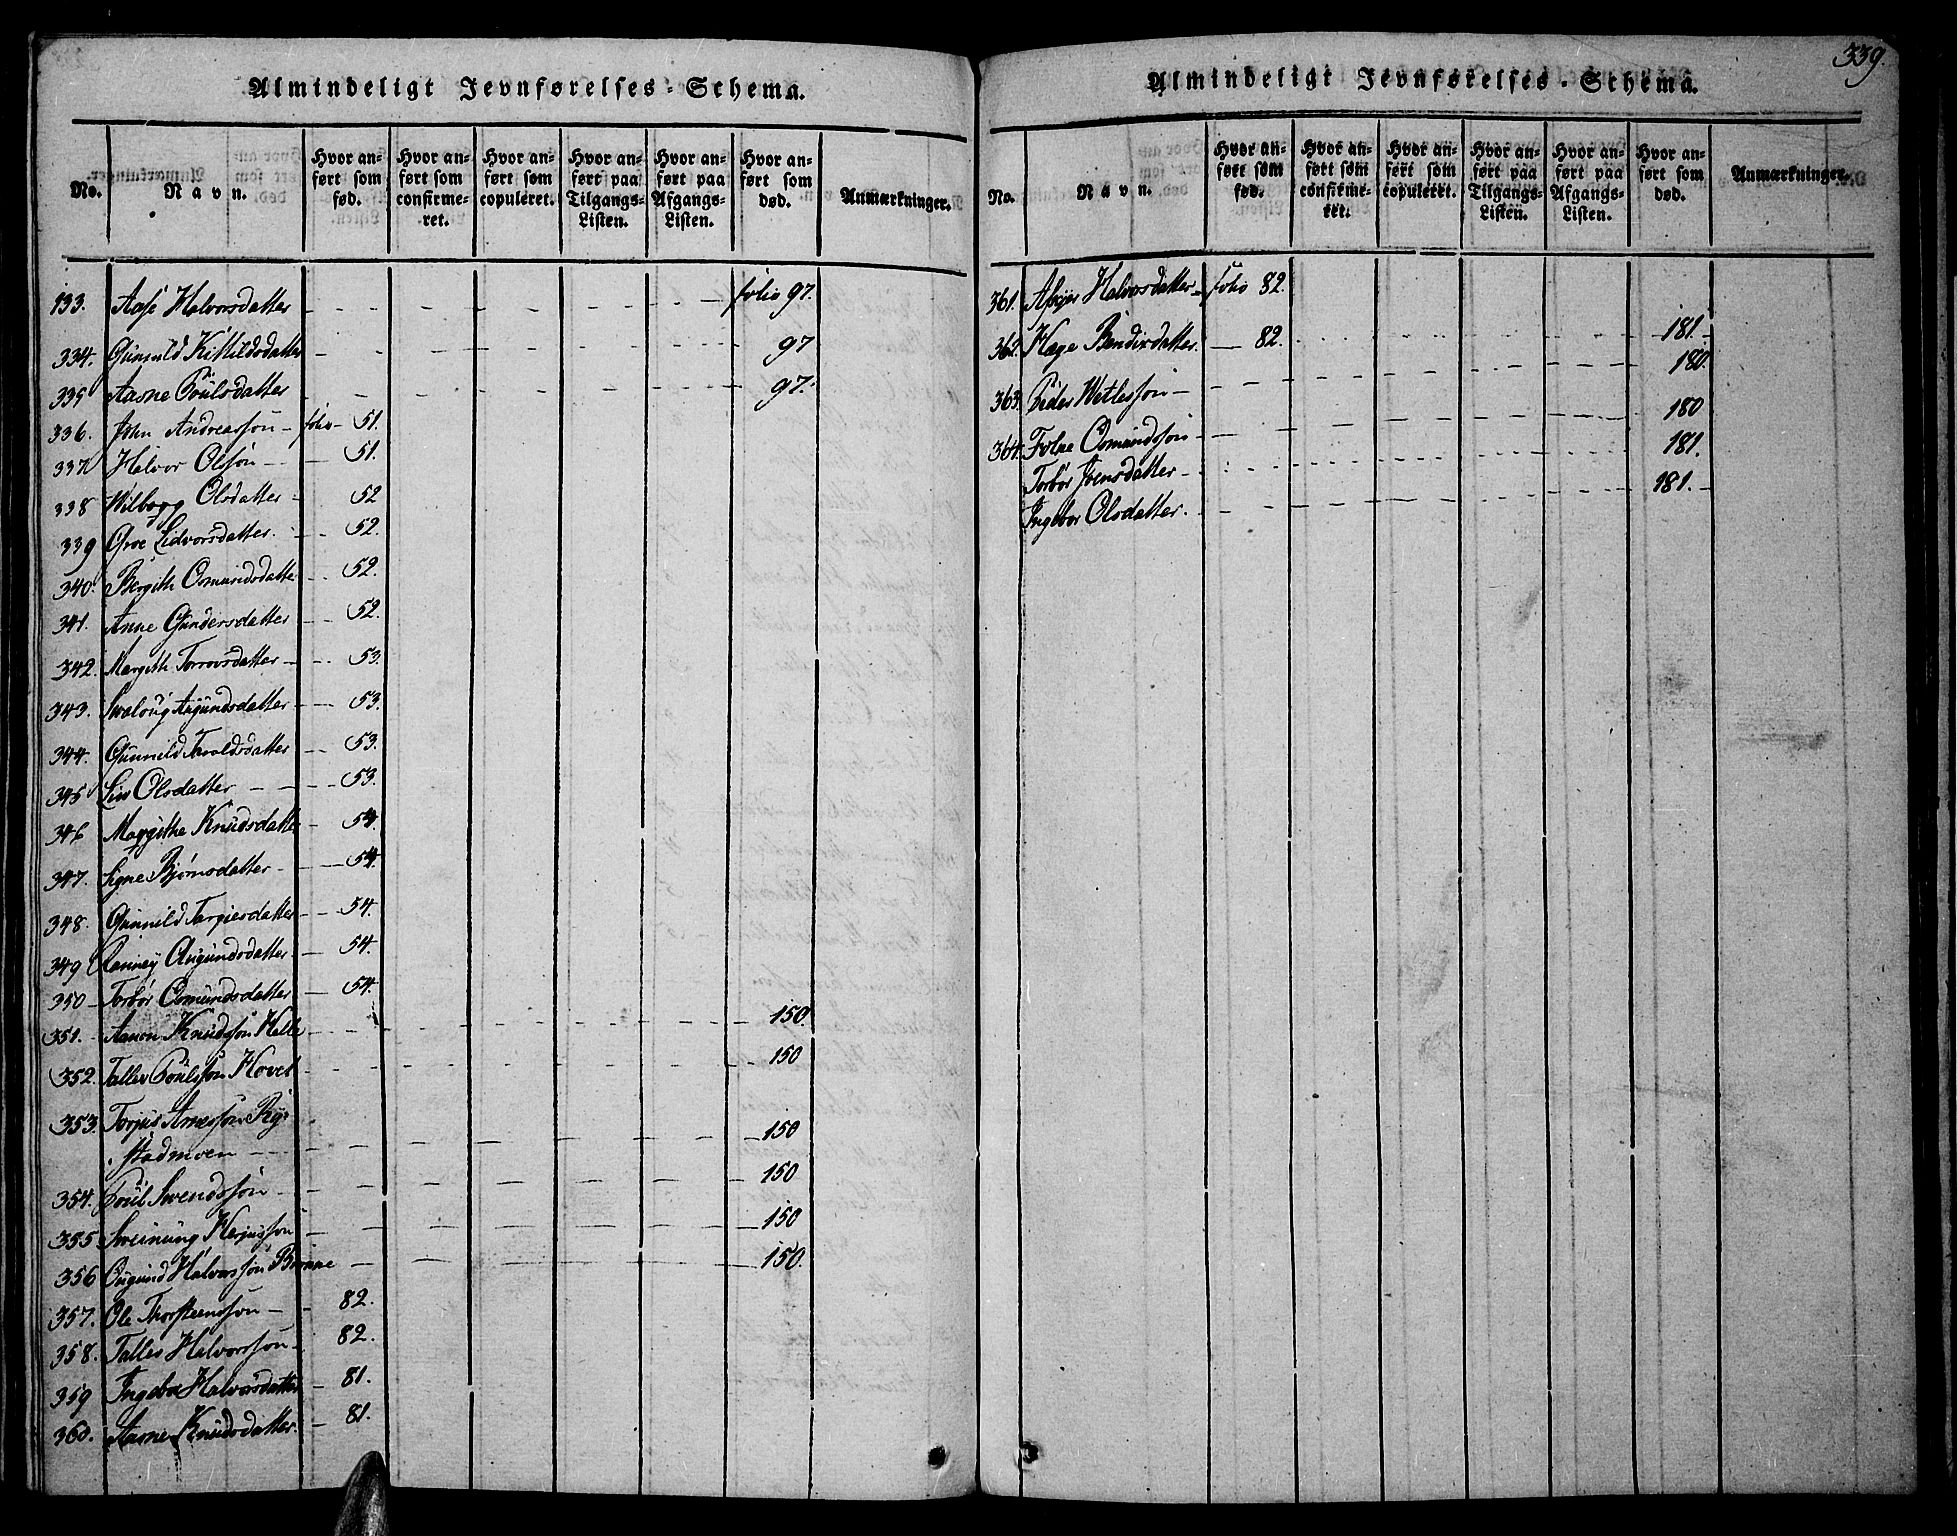 Almindeligt Jevnførelses-Schema.
No.
Navn.
Hvor anført som fød.
Hvor anført som confirmeret.
Hvor anført som copuleret.
Hvor anført paa Tilgangs-Listen.
Hvor anført paa Afgangs-Listen.
Hvor anført som død.
Anmærkninger.
133. Aase Halvorsdatter - - - - - - folio 97.
334. Gunnild Kittildsdatter - - - - - - 97
335 Aasne Povlsdatter - - - - - - 97.
336. John Andreassøn - folio - 51.
337 Halvor Olsøn - - 51.
338 Wilbogg Olsdatter - 52
339 Groe Lidvorsdatter. - - 52.
340. Bergith Osmundsdatter - - 52.
341. Anne Gundersdatter - - 52.
342. Margith Torrovsdatter - - 53.
343. Svaloug Augundsdatter - - 53.
344. Gunnild Tarvaldsdatter - - 53.
345 Liv Olsdatter - - - 53.
346 Maggithe Knudsdatter - 54.
347. Signe Bjørnsdatter - - 54.
348. Gunnild Targiersdatter - - 54.
349 Ranney Augundsdatter. - 54.
350 - Torbor Osmundsdatter - 54.
351. Aanon Knudssøn Helle - - - - - - 150.
352. Tallev Poulssøn Hovet - - - - - - 150
353. Torjus Arnessøn Ryg-
stadmoen - - - - - - 150
354. Poul Svendssøn - - - - - - 150
355 Sveinung Herjussøn - - - - - - 150
356 Ougund Halvorssøn - - - - - 150.
357. Ole Thorsteenssøn - - 82.
358. Tallev Halvorssøn - 82.
359 Ingebor Halvorsdatter - 81.
360. Aasne Knudsdatter. - 81.
339.
Almindeligt Jevnførelses-Schema.
No.
Navn.
Hvor anført som fød.
Hvor anført som confirmeret.
Hvor anført som copuleret.
Hvor anført paa Tilgangs-Listen.
Hvor anført paa Afgangs-Listen.
Hvor anført som død.
Anmærkninger.
361. Asbjør Halvorsdatter - folio 82.
362. Hæge Bendixdatter. - 82. - - - - - 181.
363. Peder Wetlessøn - - - - - - 180.
364. Folqe Osmundssøn - - - - - - 180
Torbor Jvensdatter - - - - - - 181.
Ingebor Olsdatter. - - - - - - 181. -